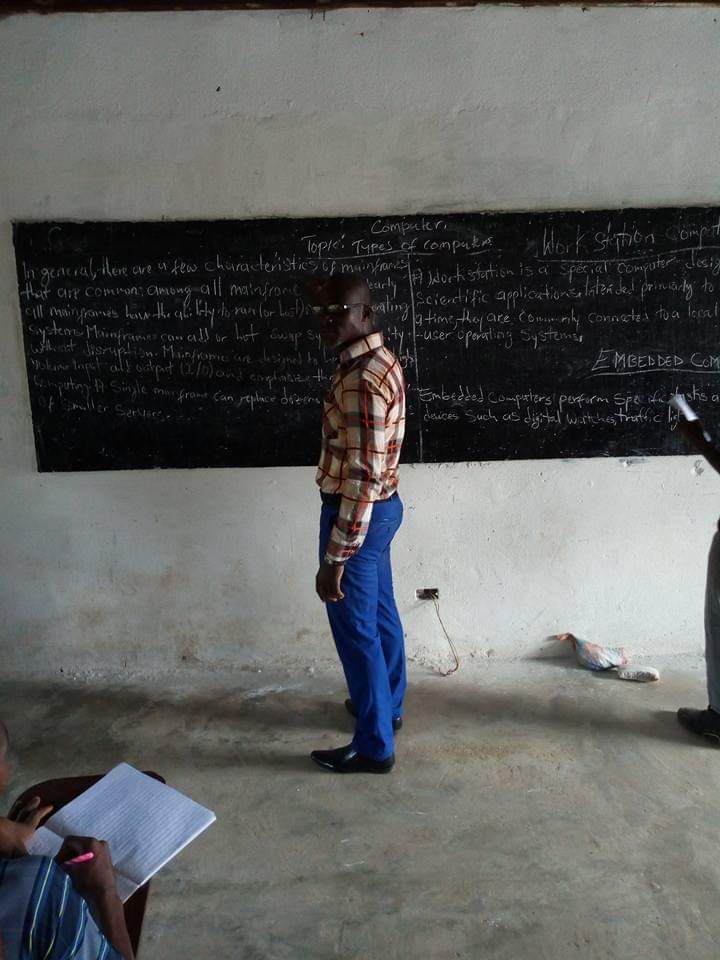 Computer.
Topic: Types of computers
In general, there are a few characteristics of mainframes
that are common among all mainframe early
all mainframes have the ability to run (or host) operating
Systems. Mainframes can add or hot swap sy ty
without disruption. Mainframe are designed to h
Volume input all output (I/O) and emphasize th
Computing. A Single mainframe can replace dozens
of Smaller Servers.
Work Station Comput
A) Workstation is a special computer desig
Scientific applications. Intended primarily to
a time, they are commonly connected to a local
-user operating Systems.
EMBEDDED COM
Embedded Computers perform Specific tasks
devices Such as digital watches, traffic lig